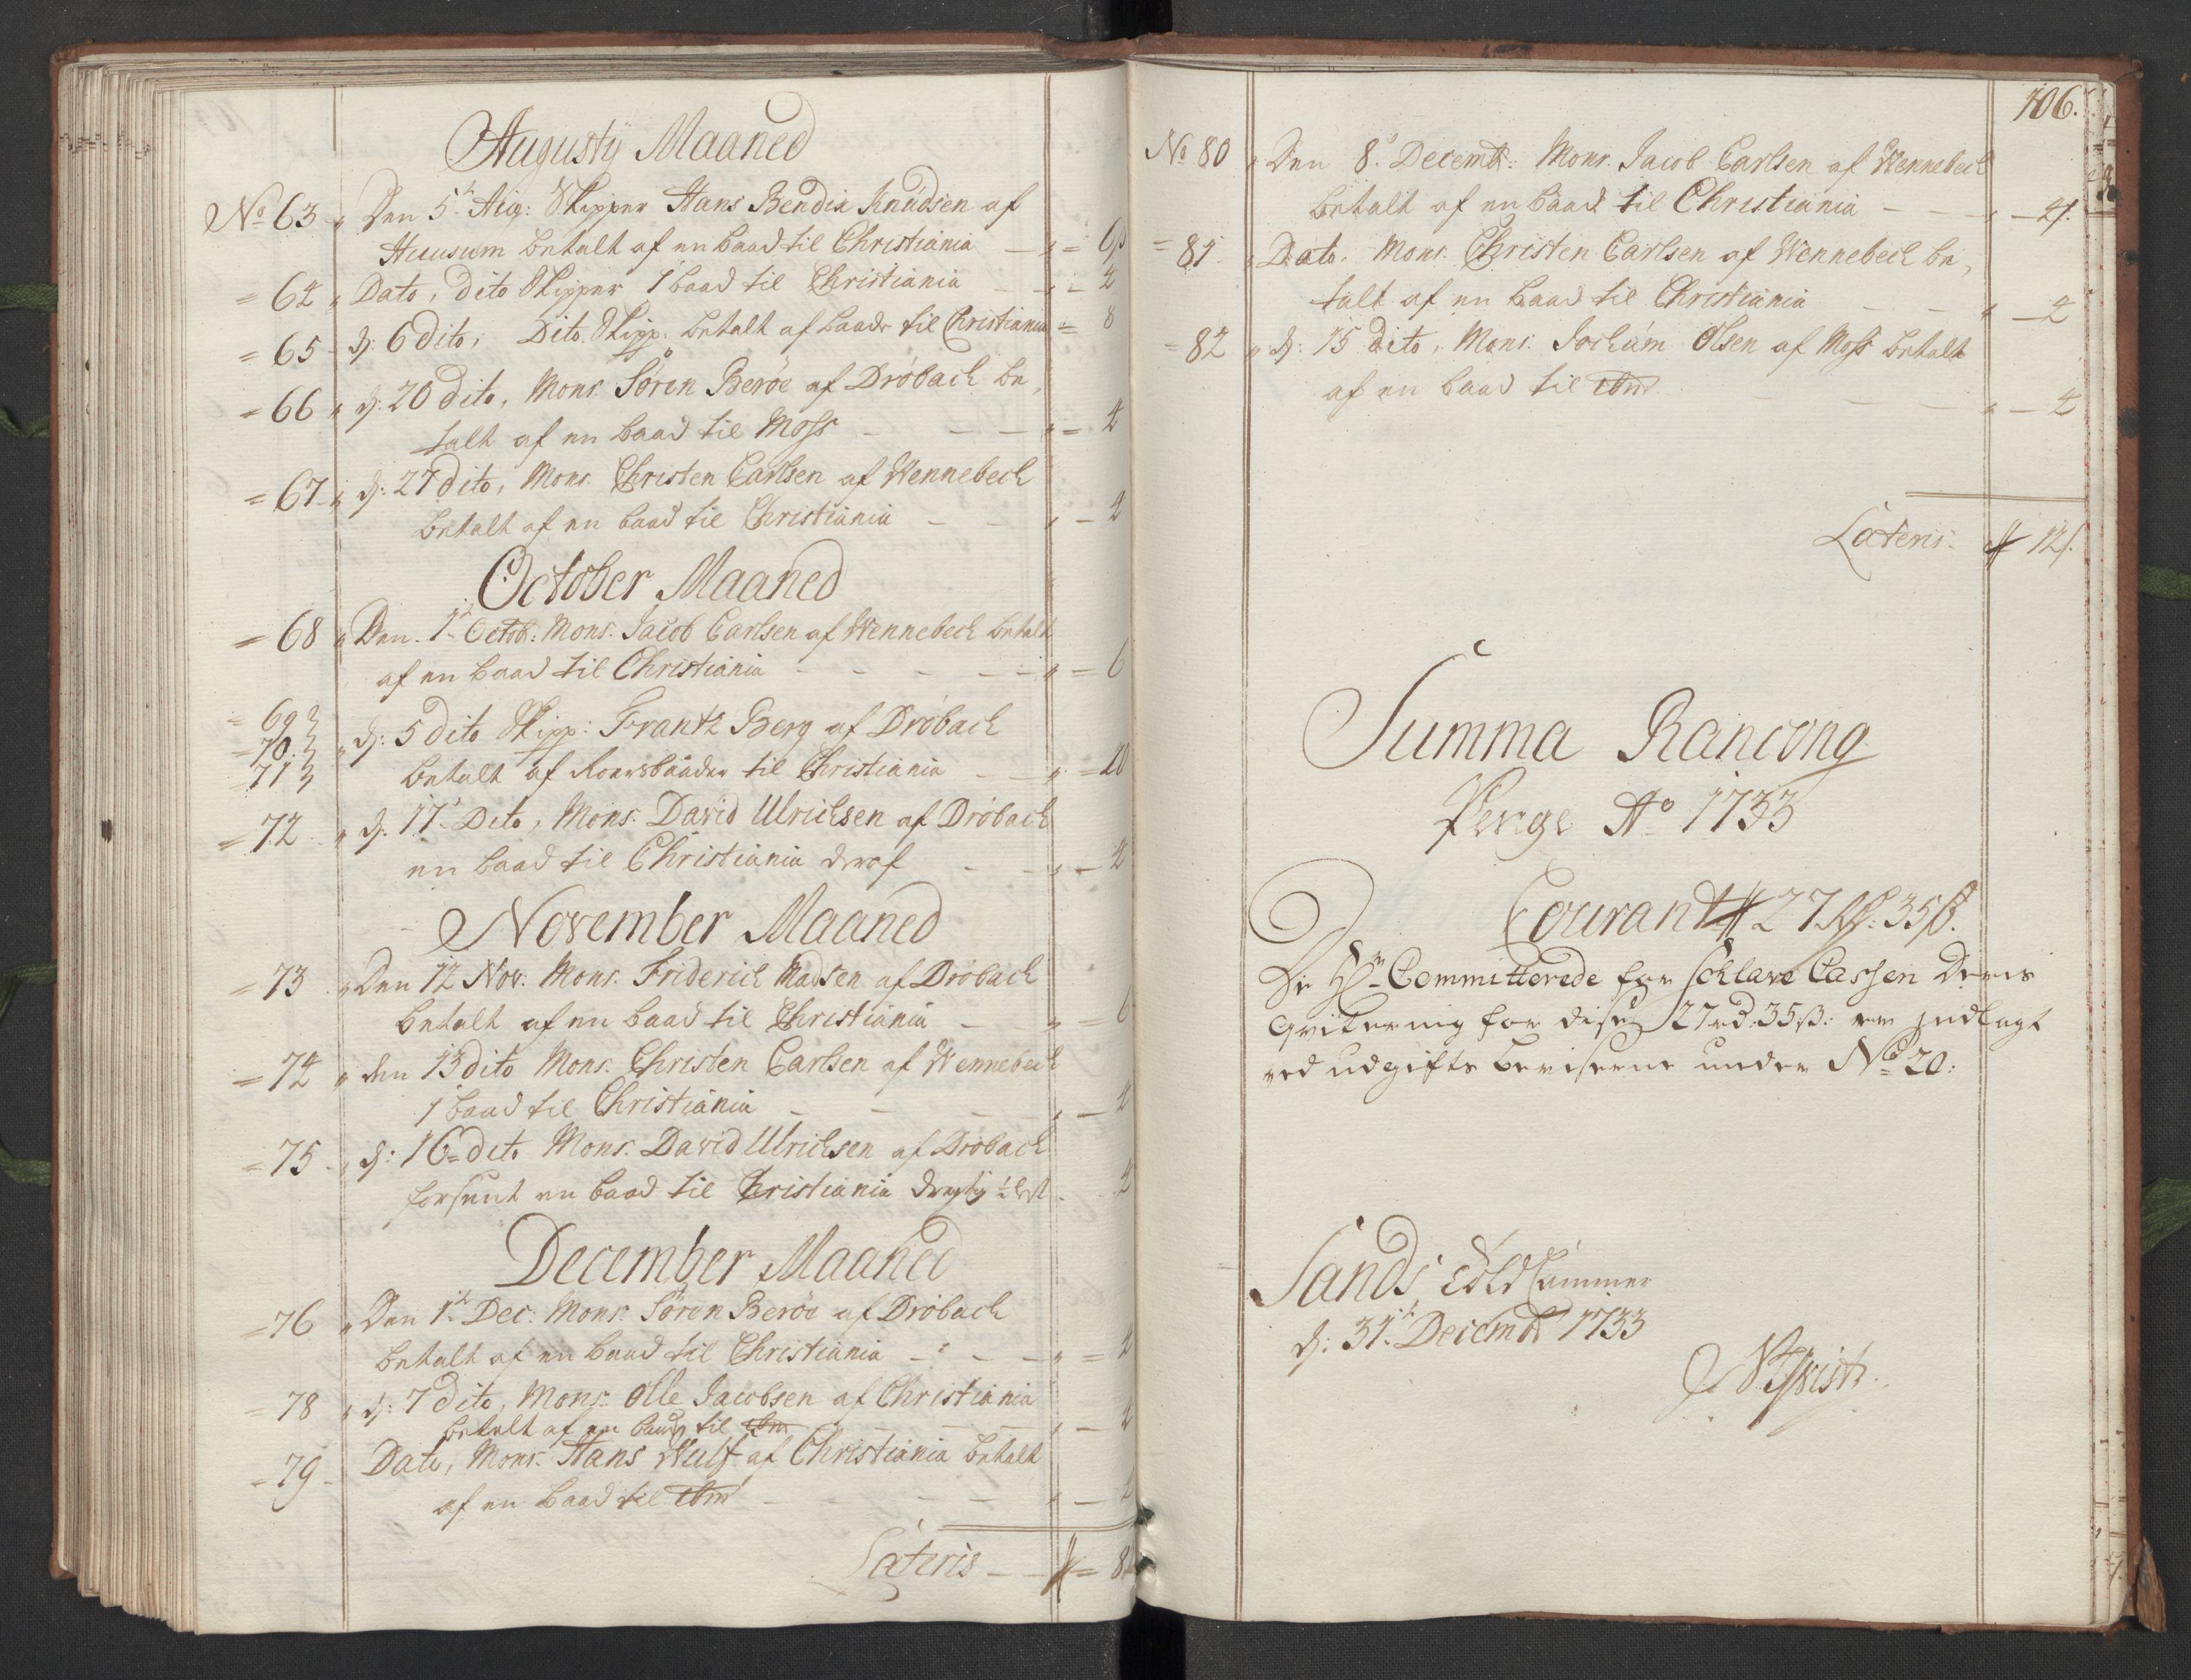 Augustÿ Maaned
No 63 Den 5t Aug: Skipper Hans Bendix Knudsen af
Huusum betalt af en baad til Christiania - " = 6β
= 64 " Dato, dito Skipper 1 baad til Christiania - " - 4
= 65 - d: 6 dito, Dito Skipp. betalt af baade til Christiania = 8
= 66 " d: 20 dito, Mons. Sören Beröe af Dröbach be,
talt af en baad til Moss - - - " = 4
= 67 " d: 27 dito, Mons. Christen Carlsen af Wennebech
betalt af en baad til Christiania - - " - 4
October Maaned
= 68 " Den 1t Octob: Mons. Jacob Carlsen af Wennebech betalt
af en baad til Christiania - - - - - " = 6
= 69
= 70. " d: 5 dito Skipp: Frantz Berg af Dröbach
71 betalt af Roersbaader til Christiania - - " = 20
= 72 " d. 17t Dito, Mons. David Ulrichsen af Dröbach
en baad til Christiania deraf - - " - 4
November Maaned
= 73 " Den 12 Nov: Mons. Friderich Madsen af Dröbach
betalt af en baad til Christiania - " = 6
= 74 " den 13 dito Mons. Christen Carlsen af Wennebech
1 baad til Christiania - - - " - 4
= 75 - " d: 16 dito Mons. David Ulrichsen af Dröbach
forsent en baad til Christiania dregtig ½ lest - 4
December Maaned
= 76 " Den 1t Dec: Mons. Sören Beröe af Dröbach
betalt af en baad til Christiania - - - " = 4
= 78 " d: 7 dito, Mons. Olle Jacobsen af Christiania
betalt af en baad til - - - " - 4
= 79 - Dato, Mons. Hans Wulf af Christiania betalt
af en baad til - - - " - 4
Lateris - - = 8
106.
No 80 " Den 8t Decembr: Mons. Jacob Carlsen af Wennebech
betalt af en baad til Christiania - - - " - 4β.
= 81. " Dato. Mons. Christen Carlsen af Wennebech be,
talt af en baad til Christiania - - " - 4
= 82 " d: 15 dito, Mons. Jochum Olsen af Moss betalt
af en baad til - - - " - 4
Lateris. 12β.
Summa Rancong
Penge Ao 1733
Courant 27 Rd: 35β.
De Hr Committerede for Schlave Cassen Deris
Qvitering for disse 27 rd: 35 β: er Indlagt
ved udgifts beviserne under No 20:
Sands Told Cammer
d: 31t Decembr 1733